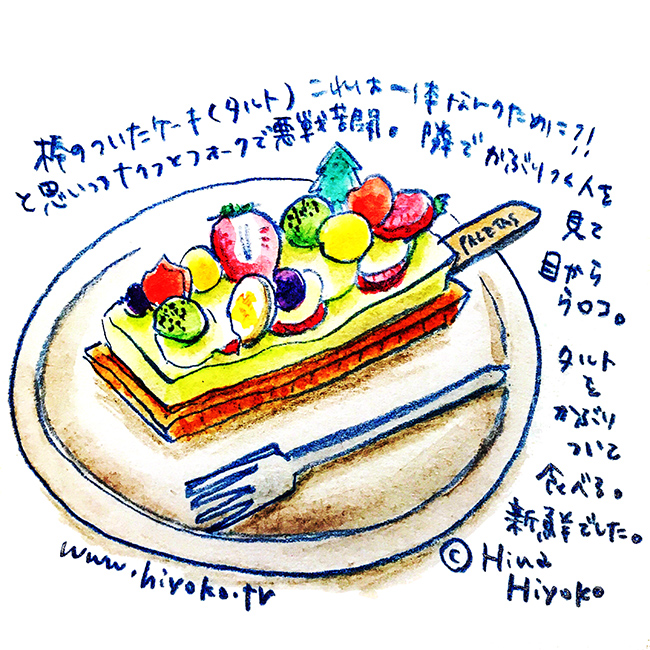 棒のついたケーキ（タルト）これは一体なんのために?!
と思いつつナイフとフォークで悪戦苦闘。隣でかぶりつく人を
見て
目から
ウロコ。
タルト
を
かぶり
ついて
食べる。
新鮮でした。
PALETAS
www.hiyoko.tv
© Hina
Hiyoko